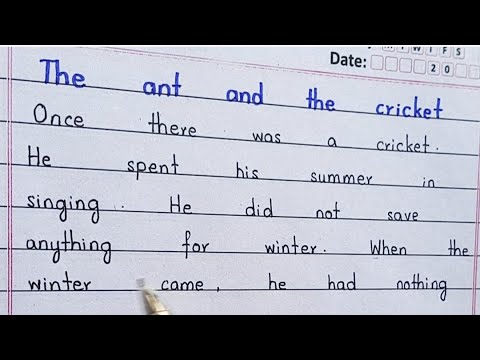 Date: 20
The ant and the cricket
Once there was a cricket.
He spent his summer in
singing. He did not save
anything for winter. When the
winter came, he had nothing